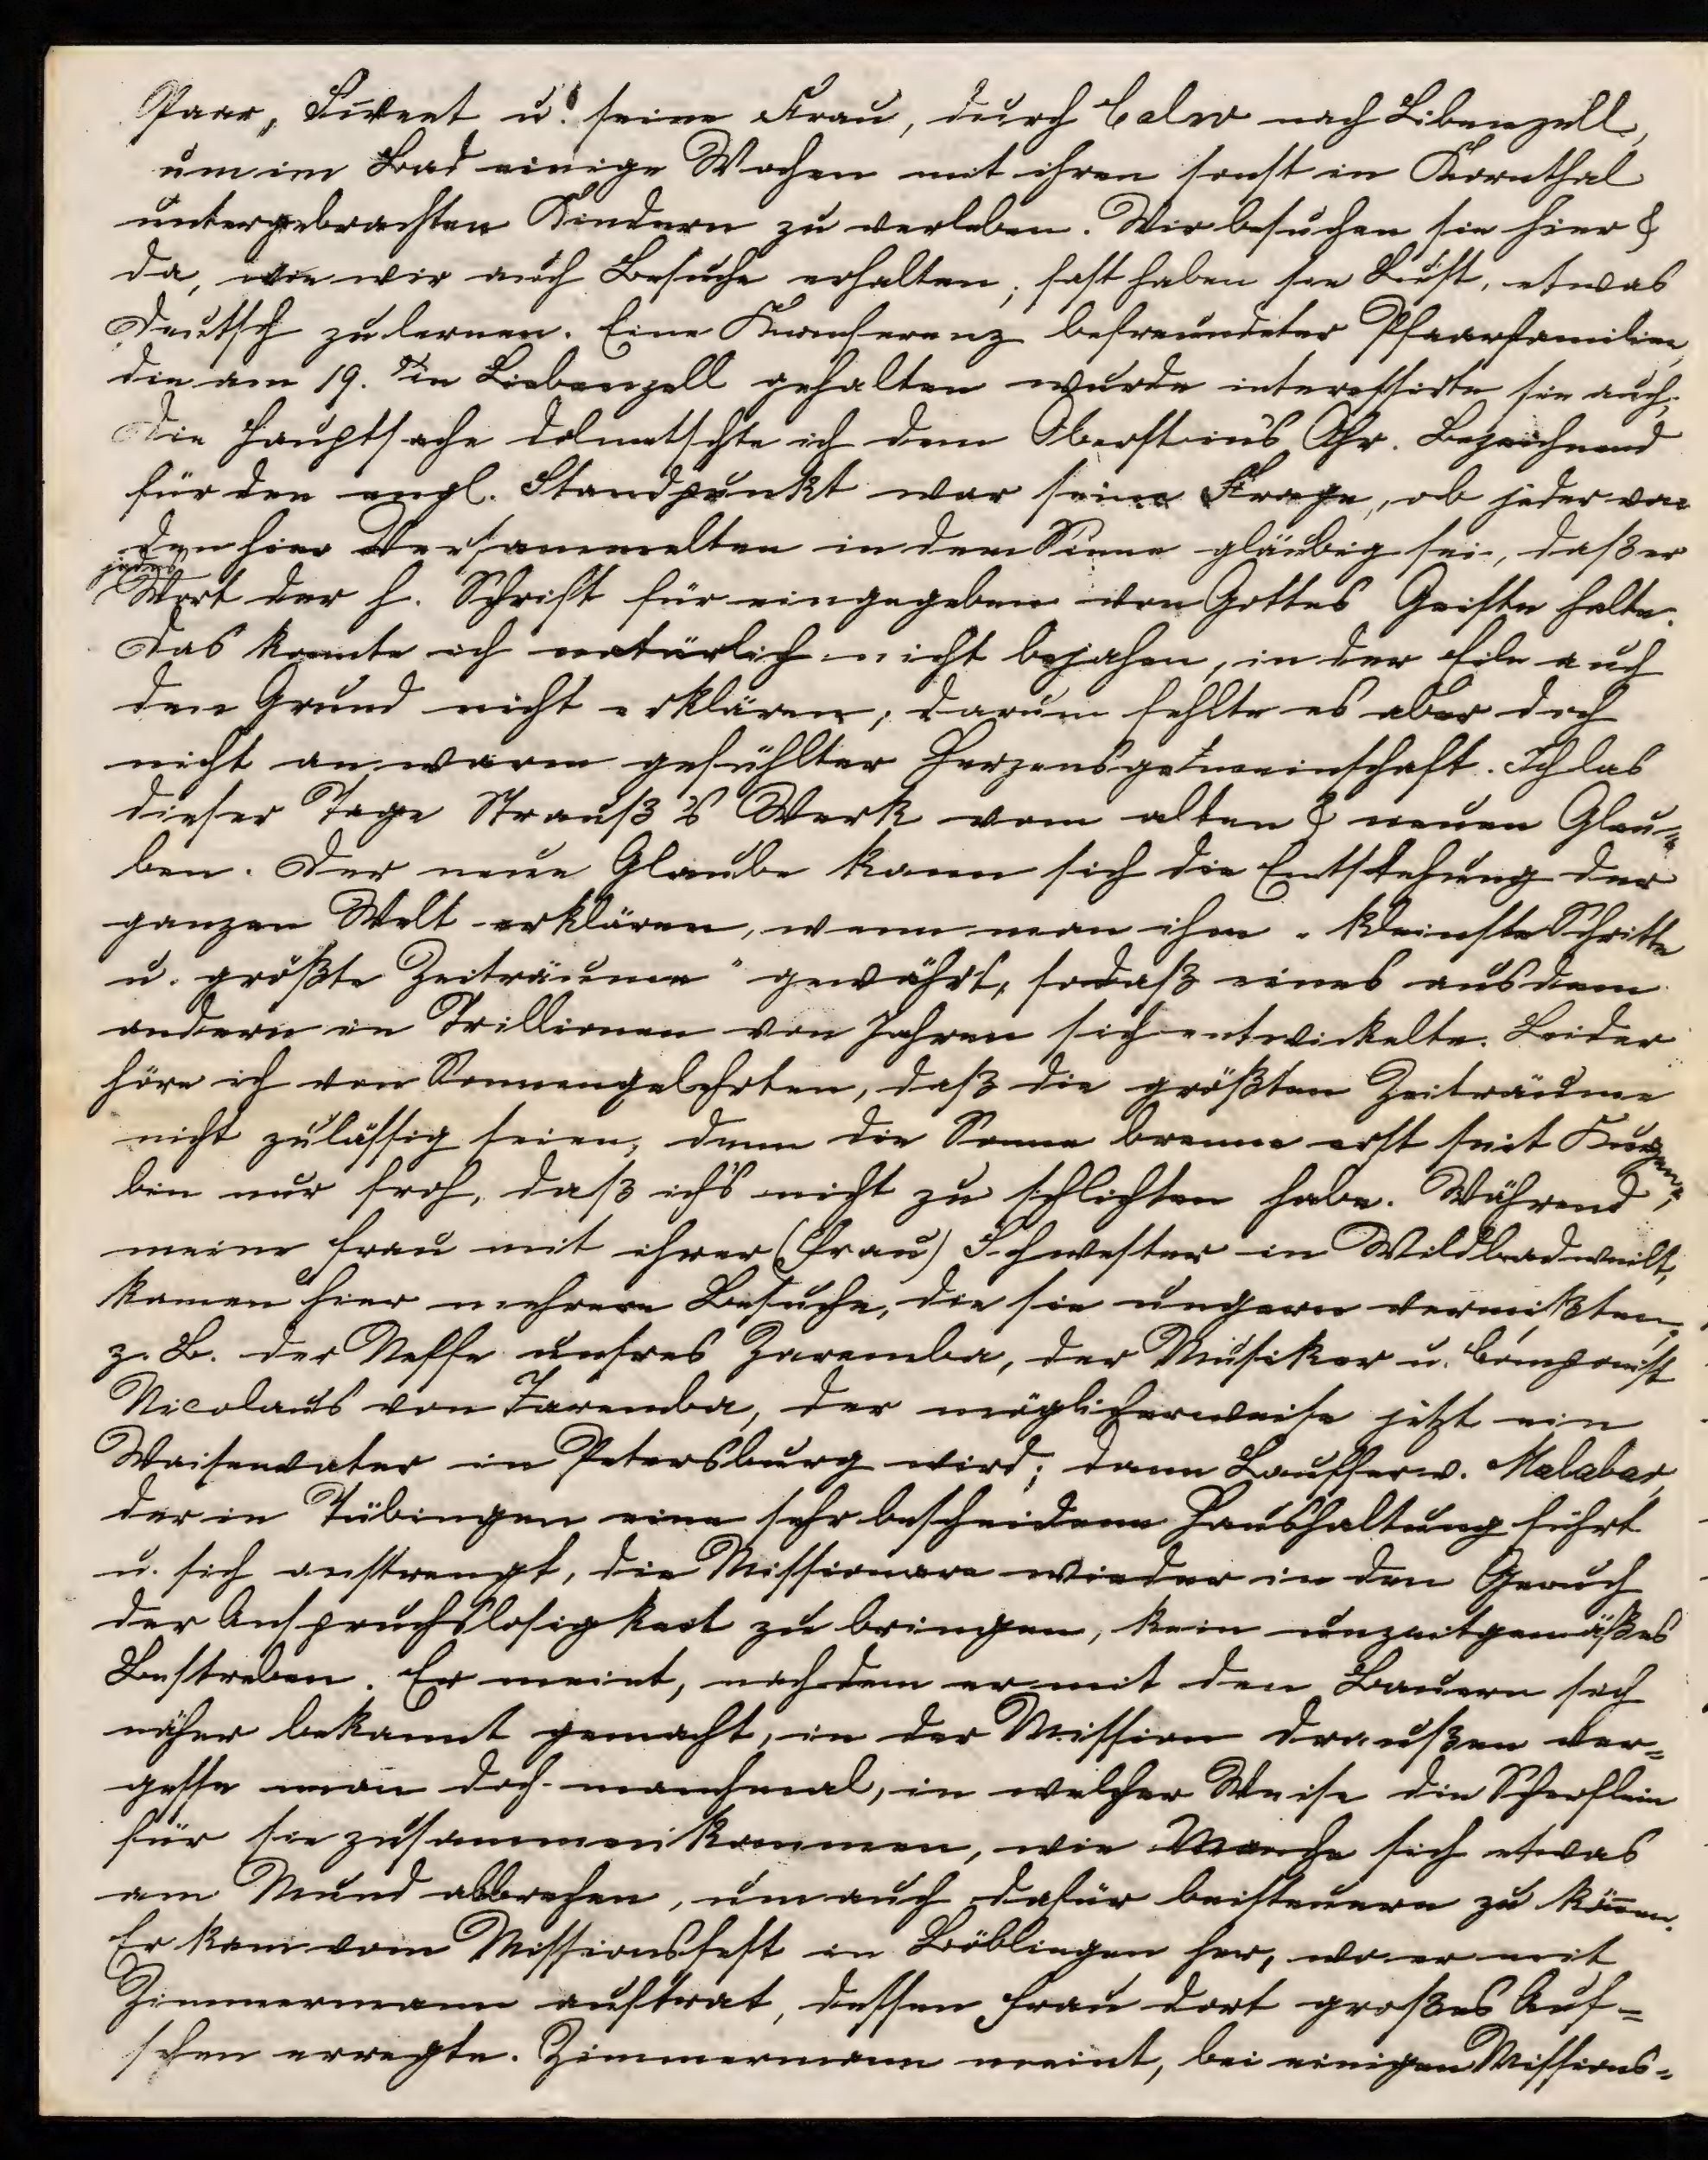 Paar, Sweet u. seine Frau, durch Calw nach Libenzell,
um im Bad einige Wochen mit ihren sonst in Kornthal
untergebrachten Kindern zu verleben. Wir besuchen sie hier &
da, wie wir auch Besuche erhalten; fast haben sie Lust, etwas
Deutsch zu lernen. Eine Konferenz befreundeter Pfarrfamilien,
die am 19. in Liebenzell gehalten wurde interessirte sie auch;
die Hauptsache dolmetschte ich dem Oberst ins Ohr. Bezeichnend
für den engl. Standpunkt war seine Frage, ob jeder von
den hier Versammelten in dem Sinne gläubig sei, daß er
jedes
Wort der h. Schrift für eingegeben von Gottes Geiste halte.
Das konnte ich natürlich nicht bejahen, in der Eile auch
den Grund nicht erklären; darum fehlte es aber doch
nicht an warm gefühlter Herzensgemeinschaft. Ich las
dieser Tage Strauß's Werk vom alten & neuen Glau-
ben. Der neue Glaube kann sich die Entstehung der
ganzen Welt erklären, wenn man ihm „kleinste Schritte
u. größte Zeiträume" gewährt, sodaß eines aus dem
andern in Trillionen von Jahren sich entwickelte. Leider
höre ich von Sonnengelehrten, daß die größten Zeiträume
nicht zulässig seien, denn die Sonne brenne erst seit Kurzem;
bin nur froh, daß ichs nicht zu schlichten habe. Während
meine Frau mit ihrer (Frau) Schwester in Wildbad weilt,
kamen hier mehrere Besuche, die sie ungern vermißten,
z. B. der Neffe unsres Zaremba, der Musiker u. Componist
Nicolaus von Zaremba, der möglicherweise jetzt ein
Waisenvater in Petersburg wird; dann Lauffer v. Malabar,
der in Tübingen eine sehr bescheidene Haushaltung führt
u. sich anstrengt, die Missionare wieder in den Geruch
der Anspruchslosigkeit zu bringen, kein unzeitgemäßes
Bestreben. Er meint, nachdem er mit den Bauern sich
näher bekannt gemacht, in der Mission draußen ver-
gesse man doch manchmal, in welcher Weise die Scherflein
für sie zusammenkommen, wie Manche sich etwas
am Mund abbrechen, um auch dafür beisteuern zu können.
Er kam vom Missionsfest in Böblingen her, wo er mit
Zimmermann auftrat, dessen Frau dort großes Auf-
sehen erregte. Zimmermann meint, bei einigen Missions-